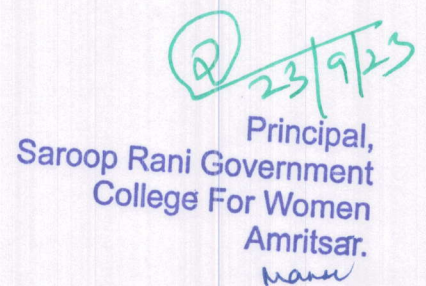 23/9/23
Principal,
Saroop Rani Government
College For Women
Amritsar.